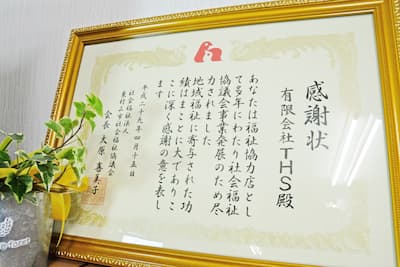 感謝状
有限会社THS殿
あなたは福祉協力店とし
て多年にわたり社会福祉
協議会事業発展のため尽
力されました
地域福祉に寄与された功
績はまことに大でありこ
こに深く感謝の意を表し
ます
平成二十九年四月十五日
社会福祉法人
東村山市社会福祉協議会
会長 大原喜美子